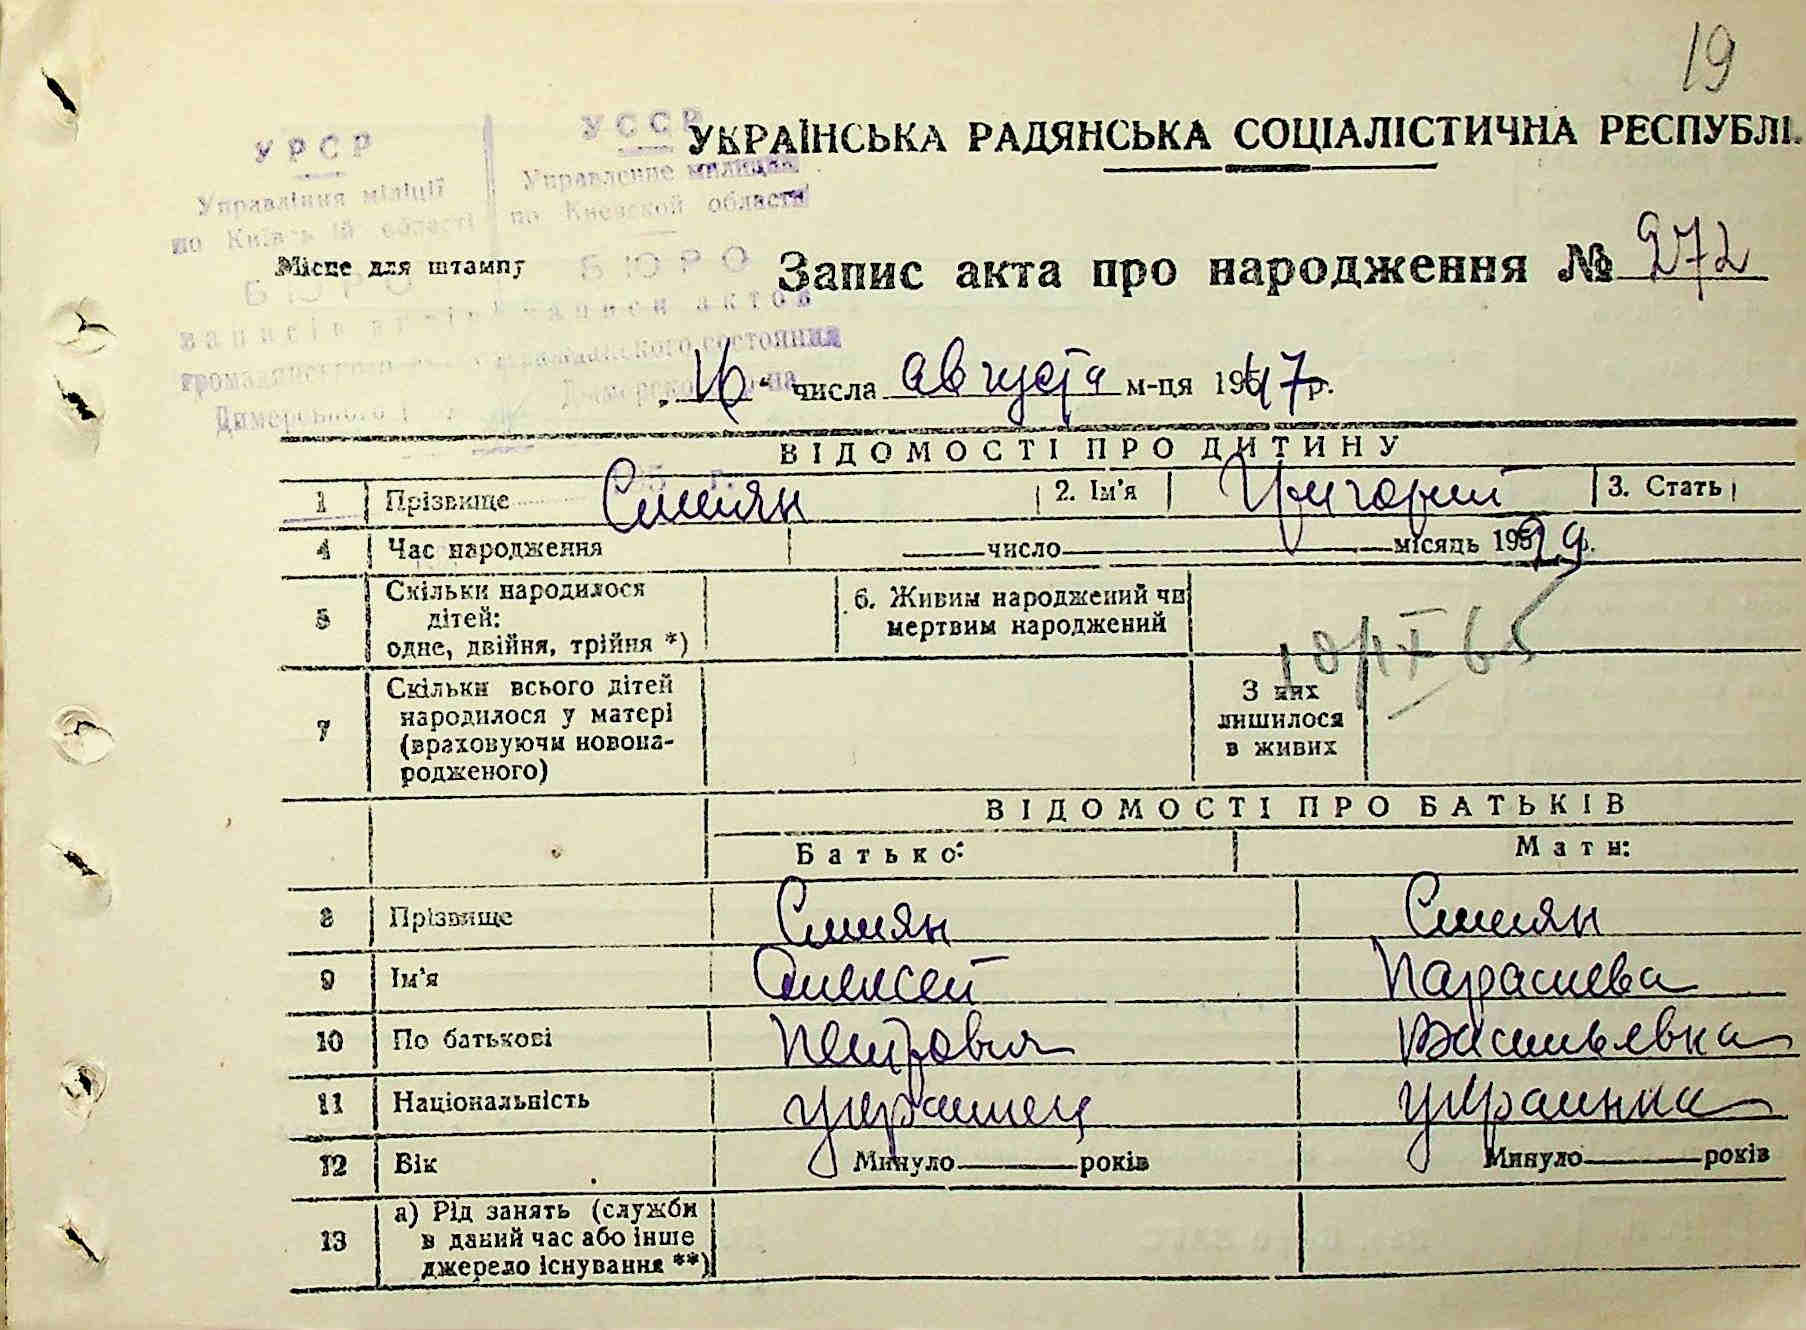 19
УРСР
УССР
УКРАЇНСЬКА РАДЯНСЬКА СОЦІАЛІСТИЧНА РЕСПУБЛІ
Управління міліції
Управление милиции
по Київській області
по Киевской области
Місце для штампу
БЮРО
БЮРО
Запис акта про народження № 272
записи актов
гражданского состояния
„16“ числа августа м-ця 1947 р.
Димерського
Дымерского р-на
ВІДОМОСТІ ПРО ДИТИНУ
1 Прізвище Симян 2. Ім'я Григорий 3. Стать
4 Час народження число місяць 1929 р.
5 Скільки народилося дітей: одне, двійня, трійня *) 6. Живим народжений чи мертвим народжений
10/IX 65
7 Скільки всього дітей народилося у матері (враховуючи новонародженого) З них лишилося в живих
ВІДОМОСТІ ПРО БАТЬКІВ
Батько: Мати:
8 Прізвище Симян Симян
9 Ім'я Алексей Параскева
10 По батькові Петрович Васильевна
11 Національність украинец украинка
12 Вік Минуло років Минуло років
13 а) Рід занять (служби
в даний час або інше
джерело існування **)